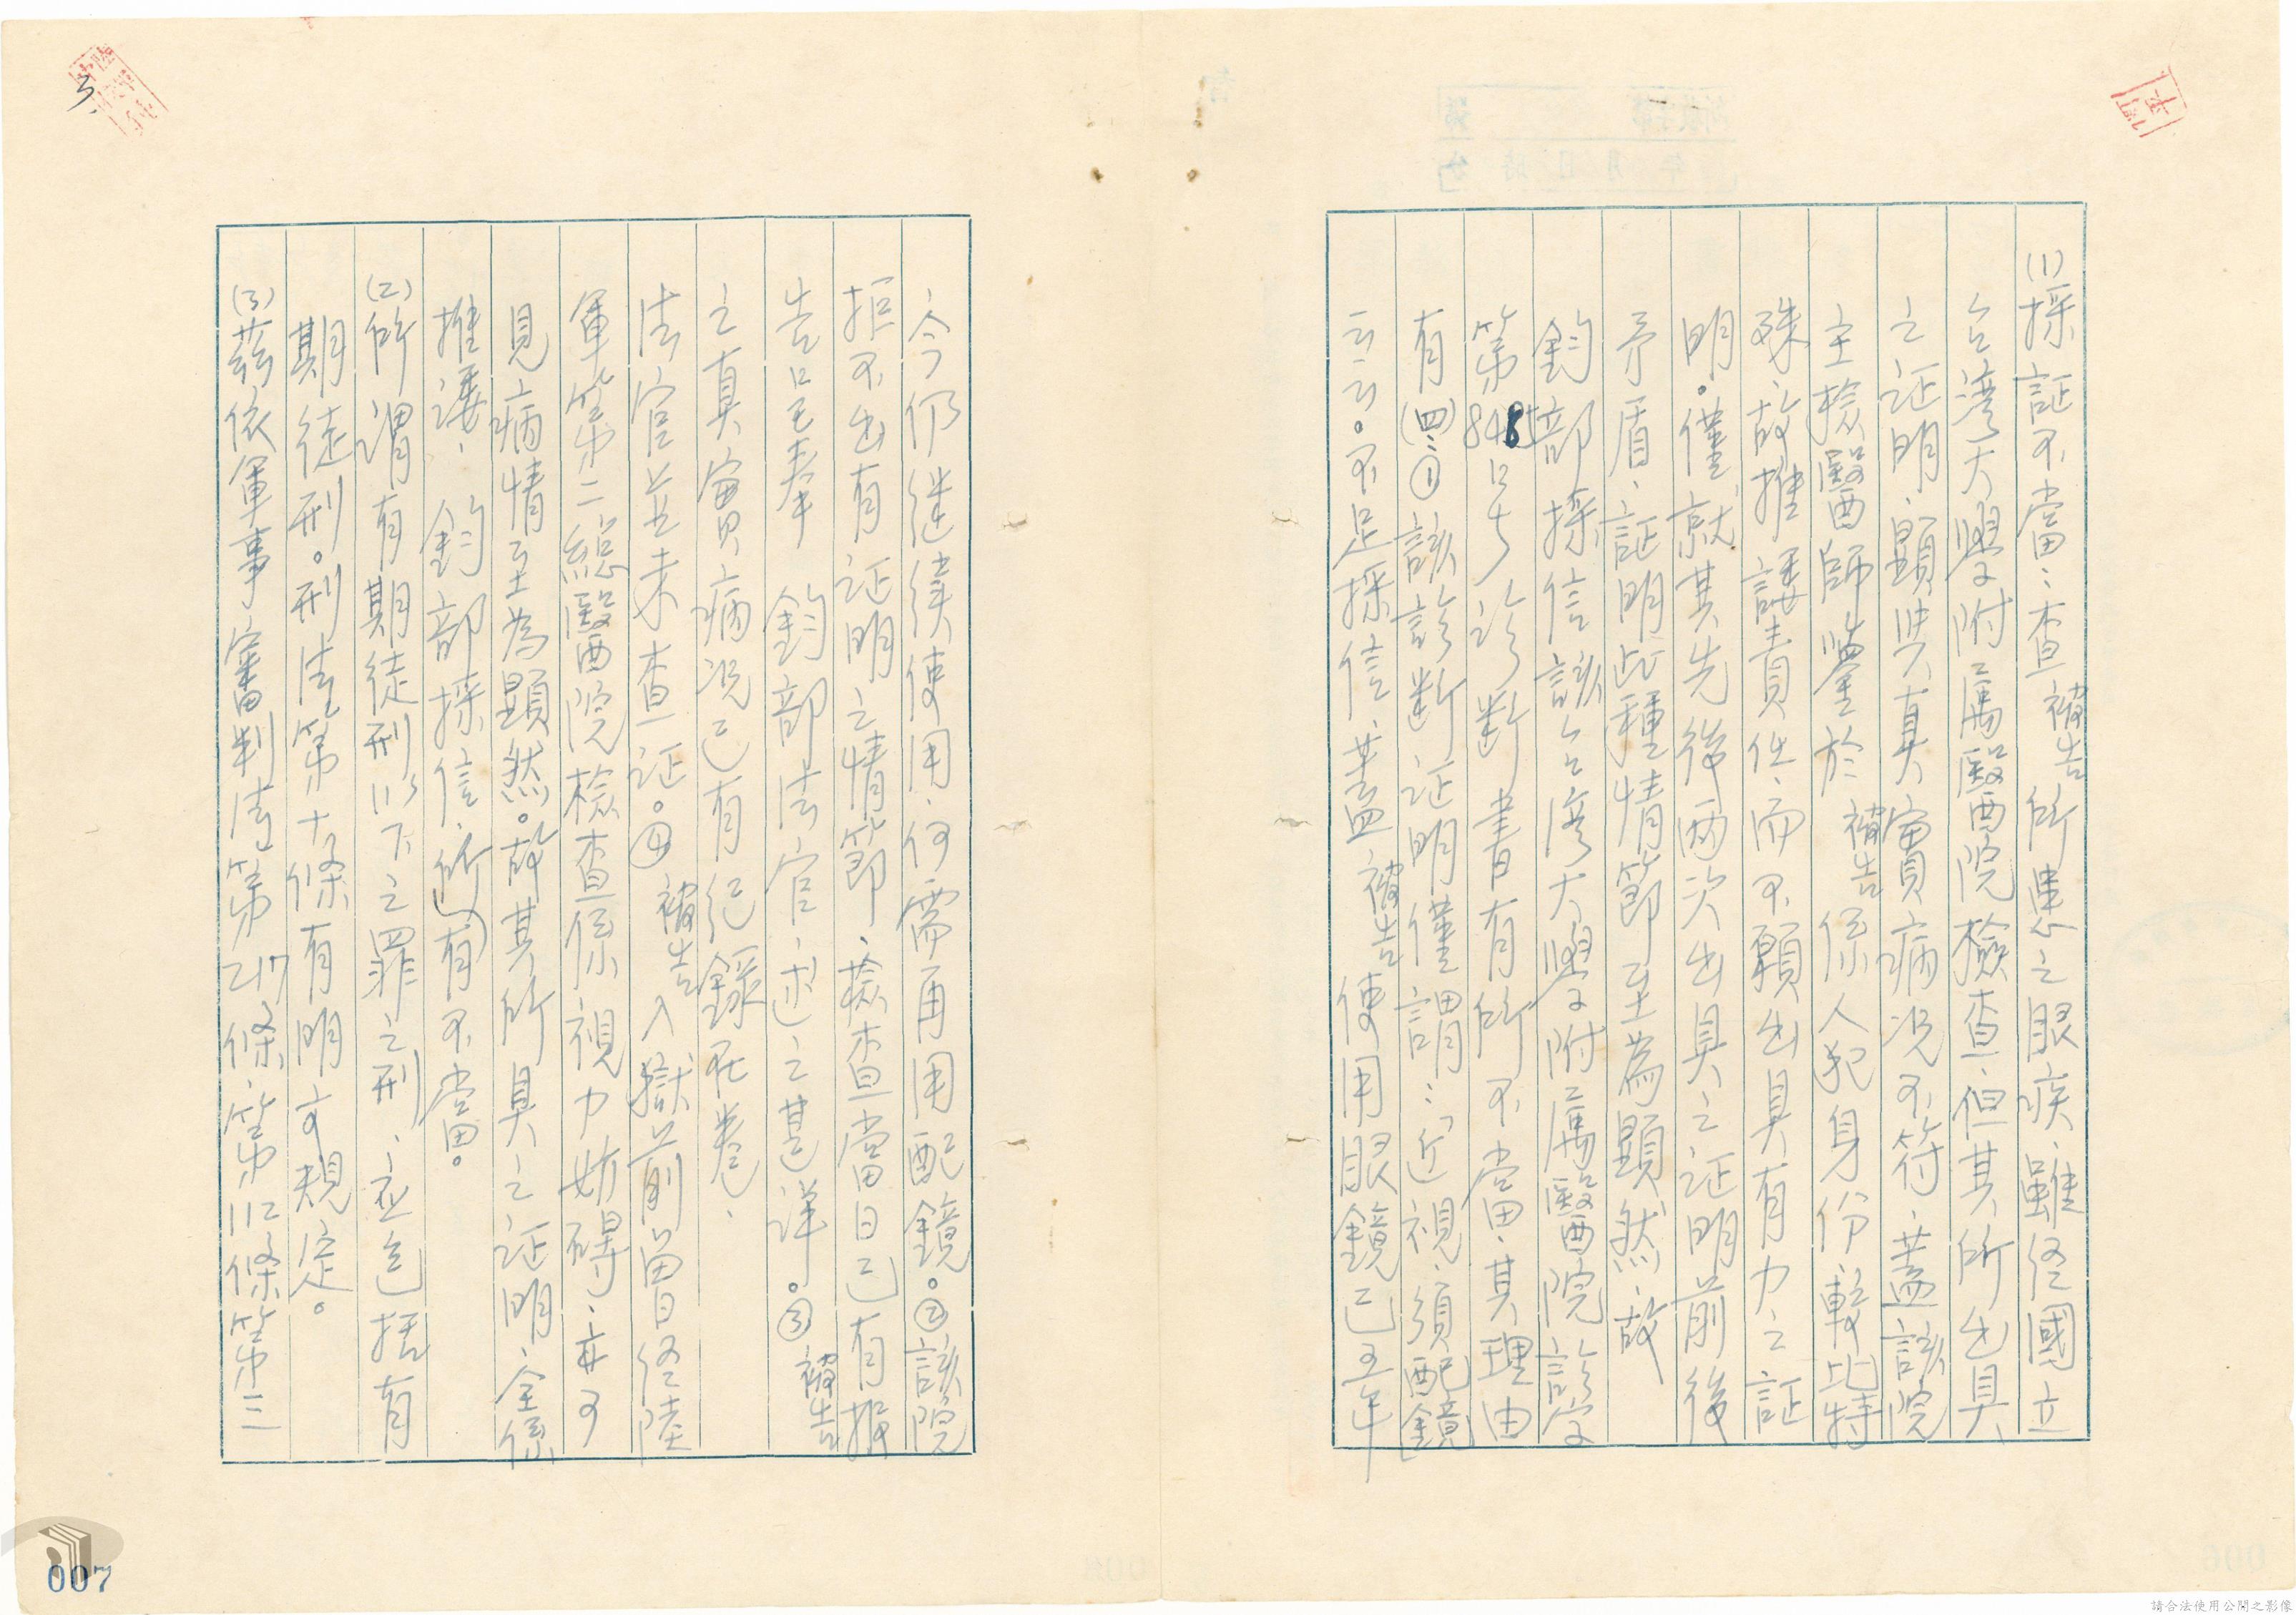 (1)採証不當：查被告所患之眼疾、雖经國立
台湾大學附属醫院檢查、但其所出具
之证明、顯與真實病況不符、蓋該院
主檢醫師鑒於被告係人犯身份、較比特
殊、故推諉責任、而不願出具有力之証
明。僅就其先後两次出具之证明前後
矛盾、証明此種情節至為顯然、故
鈞部採信該台湾大學附属醫院診字
第848号診断書有所不當、其理由
有(四)：①該診断证明僅謂：「近視、須配鏡」
云云。不足採信、蓋被告使用眼鏡已五年
今仍继续使用、何需再用配鏡。②該院
拒不出有证明之情節、檢查當日已有報
告呈奉 鈞部法官、述之甚详。③被告
之真實病況已有纪錄在卷、
法官並未查证。④被告入獄前曾经陸
軍第二總醫院檢查係視力妨碍、亦可
見病情至為顯然。故其所具之证明、全係
推諉、鈞部採信、所(有)不當。
(2)所謂有期徒刑以下之罪之刑、应包括有
期徒刑。刑法第十條有明文規定。
(3)茲依軍事審判法第217條、第112條第三
3.
007
請合法使用公開之影像